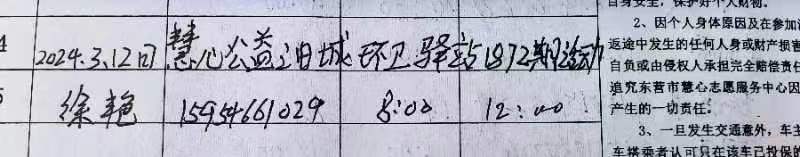 4
2024.3.12日 慧心公益 油城环卫驿站1872期活动
5
徐艳 15954661029 8:00 12:00
自身安全，保护好个人财物。
2、因个人身体原因及在参加
返途中发生的任何人身或财产损害
自负或由侵权人承担完全赔偿责任
追究东营市慧心志愿服务中心因
产生的一切责任。
3、一旦发生交通意外，车主
车搭乘者认可只在该车已投保的